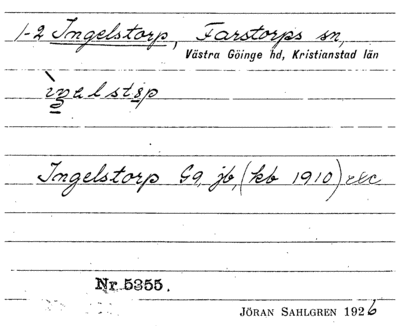 1-2 Ingelstorp, Farstorps sn,
Västra Göinge hd, Kristianstad län
Ingelstorp Gg, jb, (kb 1910) etc
Nr 5355.
JÖRAN SAHLGREN 1926